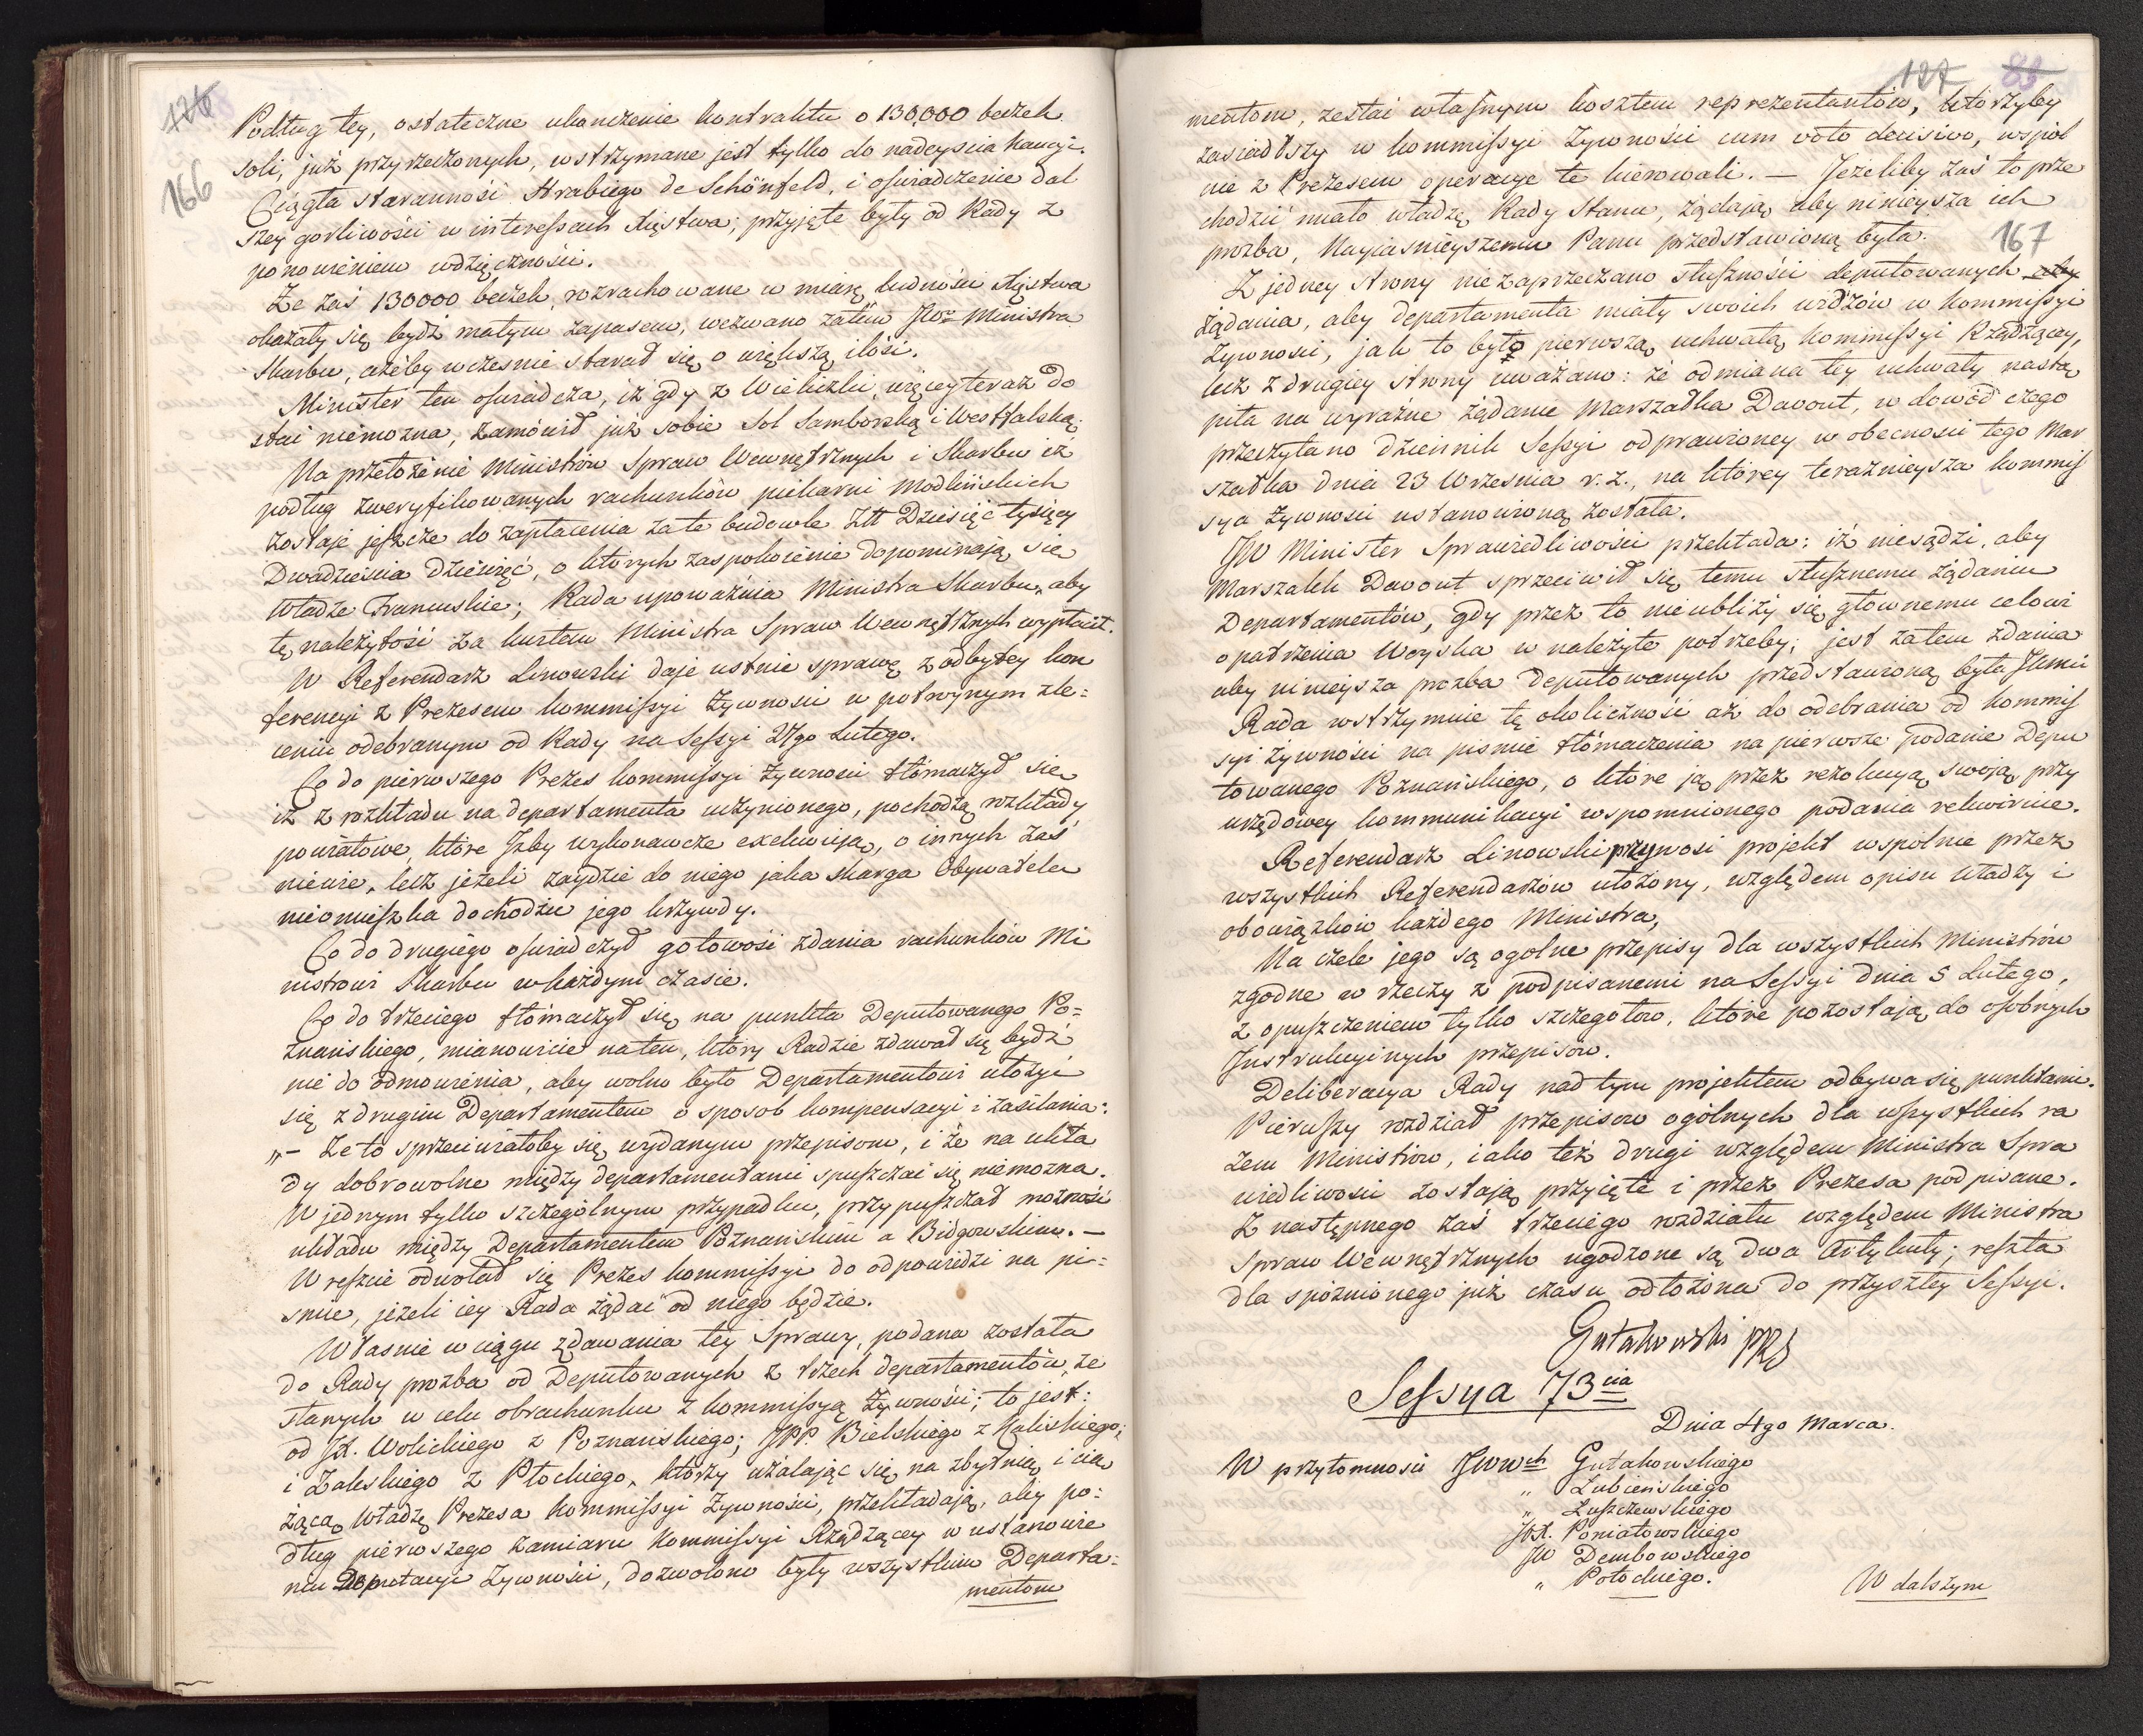 126
166
Podług tey, ostateczne ukończenie kontraktu o 130,000 beczek
soli, już przyrzeczonych, wstrzymane jest tylko do nadeyscia kaucyi.
Ciągła staranność Hrabiego de Schönfeld, i oświadczenie dal
szey gorliwości w interessach Xięstwa; przyjęte były od Rady z
ponowieniem wdzięczności.
Że zaś 130000 beczek, rozrachowane w miarę ludności Xięstwa
okazały się bydź małym zapasem, wezwano zatém JWo Ministra
Skarbu, ażeby wcześnie starał się o większą ilość.
Minister ten oświadcza, iż gdy z Wieliczki więcey teraz do
stać niemożna, zamówił już sobie Sol Samborską i Westfalską.
Na przełożenie Ministrów Spraw Wewnętrznych i Skarbu iż
podług zweryfikowanych rachunków piekarni Modlińskich
zostaje jeszcze do zapłacenia za te budowle Złt Dziesięć tysięcy
Dwadzieścia Dziewięć, o których zaspokoienie dopominają się
Władze Francuskie; Rada upoważnia Ministra Skarbu, aby
tę należytość za kwitem Ministra Spraw Wewnętrznych wypłacił.
W Referendarz Linowski daje ustnie sprawę z odbytey kon
ferencyi z Prezesem kommissyi Żywności w potroynym zle=
ceniu odebranym od Rady na Sessyi 27go Lutego.
Co do pierwszego Prezes kommissyi Żywności tłómaczył się
iż z rozkładu na departamenta uczynionego, pochodzą rozkłady
powiatowe, które Izby wykonawcze exekwują, o innych zaś
niewie, lecz jeżeli zaydzie do niego jaka skarga Obywatela
nieomieszka dochodzić jego krzywdy.
Co do drugiego oświadczył gotowość zdania rachunków Mi
nistrowi Skarbu w każdym czasie.
Co do trzeciego tłómaczył się na punkta Deputowanego Po=
znańskiego, mianowicie na ten, który Radzie zdawał się bydź
nie do odmówienia, aby wolno było Departamentowi ułożyć
się z drugim Departamentem o sposob kompensacyi i zasilania:
„– Że to sprzeciwiałoby się wydanym przepisom, i że na ukła
dy dobrowolne między departamentami spuszczać się niemożna.
W jednym tylko szczególnym przypadku, przypuszczał możność
układu między Departamentem Poznańskim a Bidgowskim. –
W reszcie odwołał się Prezes kommissyi do odpowiedzi na pi=
smie, jeżeli iey Rada żądać od niego będzie.
Własnie w ciągu zdawania tey Sprawy, podana została
do Rady prozba od Deputowanych z trzech departamentów ze
słanych w celu obrachunku z kommissyą Żywności; to jest:
od JX. Wolickiego z Poznańskiego; JPP. Bielskiego z Kaliskiego;
i Zaleskiego z Płockiego, którzy użalając się na zbytnią i cią
żącą Władzę Prezesa Kommissyi Żywności, przekładają, aby po=
dług pierwszego zamiaru Kommissyi Rządzącey w ustanowie
niu Deputacyi Żywności, dozwolono były wszystkim Departa=
mentom
127 83
mentom, zesłać własnym kosztem reprezentantów, którzyby
zasiadłszy w kommissyi Żywności cum voto decisivo, wspól
nie z Prezesem operacye te kierowali. – Jeżeliby zaś to prze
chodzić miało władzę Rady Stanu, żądają aby ninieysza ich
prozba, Nayiaśnieyszemu Panu przedstawioną była.
167
Z jedney strony niezaprzeczano słuszności deputowanych aby
żądania, aby departamenta miały swoich widzów w kommissyi
Żywnosci, jak to było pierwszą uchwałą kommissyi Rządzącey,
lecz z drugiey strony uważano: że odmiana tey uchwały nastą
piła na wyraźne żądanie Marszałka Davout, w dowód czego
przeczytano dziennik Sessyi odprawioney w obecności tego Mar
szałka dnia 23 Września r. z., na którey teraznieysza kommis
sya Żywnosci ustanowioną została.
JW Minister Sprawiedliwosci przekłada: iż niesądzi, aby
Marszałek Davout sprzeciwił się temu słusznemu żądaniu
Departamentów, gdy przez to nieubliży się głównemu celowi
opatrzenia Woyska w należyte potrzeby; jest zatem zdania
aby ninieysza prozba Deputowanych przedstawioną była Jemu
Rada wstrzymuie tę okoliczność aż do odebrania od kommis
syi Żywności na piśmie tłómaczenia na pierwsze podanie Depu
towanego Poznańskiego, o które ją przez rezolucyą swoją przy
urzędowey kommunikacyi wspomnionego podania rekwiruie.
Referendarz Linowski przynosi projekt wspólnie przez
wszystkich Referendarzów ułożony, względem opisu władzy i
obowiązków każdego Ministra,
Na czele jego są ogolne przepisy dla wszystkich Ministrów
zgodne w rzeczy z podpisanemi na Sessyi dnia 5 Lutego,
z opuszczeniem tylko szczegołow, które pozostają do osobnych
Instrukcyinych przepisów.
Deliberacya Rady nad tym projektem odbywa się punktami.
Pierwszy rozdział przepisow ogólnych dla wszystkich ra
zem Ministrów, iako też drugi względem Ministra Spra
wiedliwosci zostają przyięte i przez Prezesa podpisane.
Z następnego zaś trzeciego rozdziału względem Ministra
Spraw Wewnętrznych ugodzone są dwa Artykuły; reszta
dla spoznionego już czasu odłożona do przyszłey Sessyi.
Gutakowski PRS
Sessya 73cia
Dnia 4go Marca.
W przytomności JWWch Gutakowskiego
„ Łubieńskiego
„ Łuszczewskiego
JOX. Poniatowskiego
JW Dembowskiego
„ Potockiego.
W dalszym